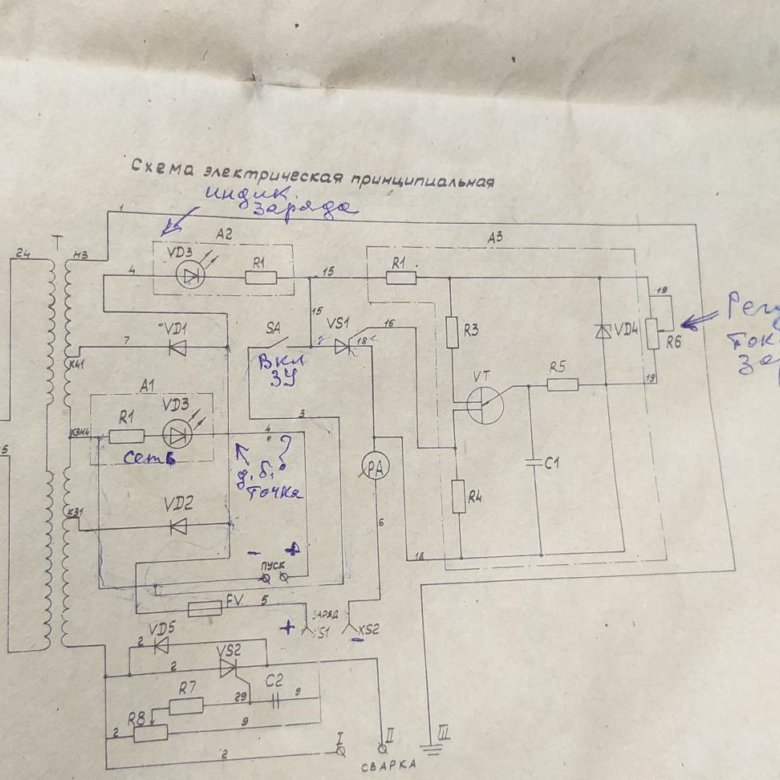 Схема электрическая принципиальная
индик.
заряда
1
24
T
Н3
A2
A3
4
VD3
R1
15
R1
19
15
SA
VS1
16
VD1
7
18
Вкл
ЗУ
R3
VD4
R6
К41
VT
R5
19
A1
R1
VD3
3
4
сеть
точка
PA
C1
R4
5
К31
VD2
6
18
- +
ПУСК
FV
5
ЗАРЯД
+
XS2
-
2
VD5
2
VS2
R7
29
C2
9
R8
2
9
2
I
II
III
СВАРКА